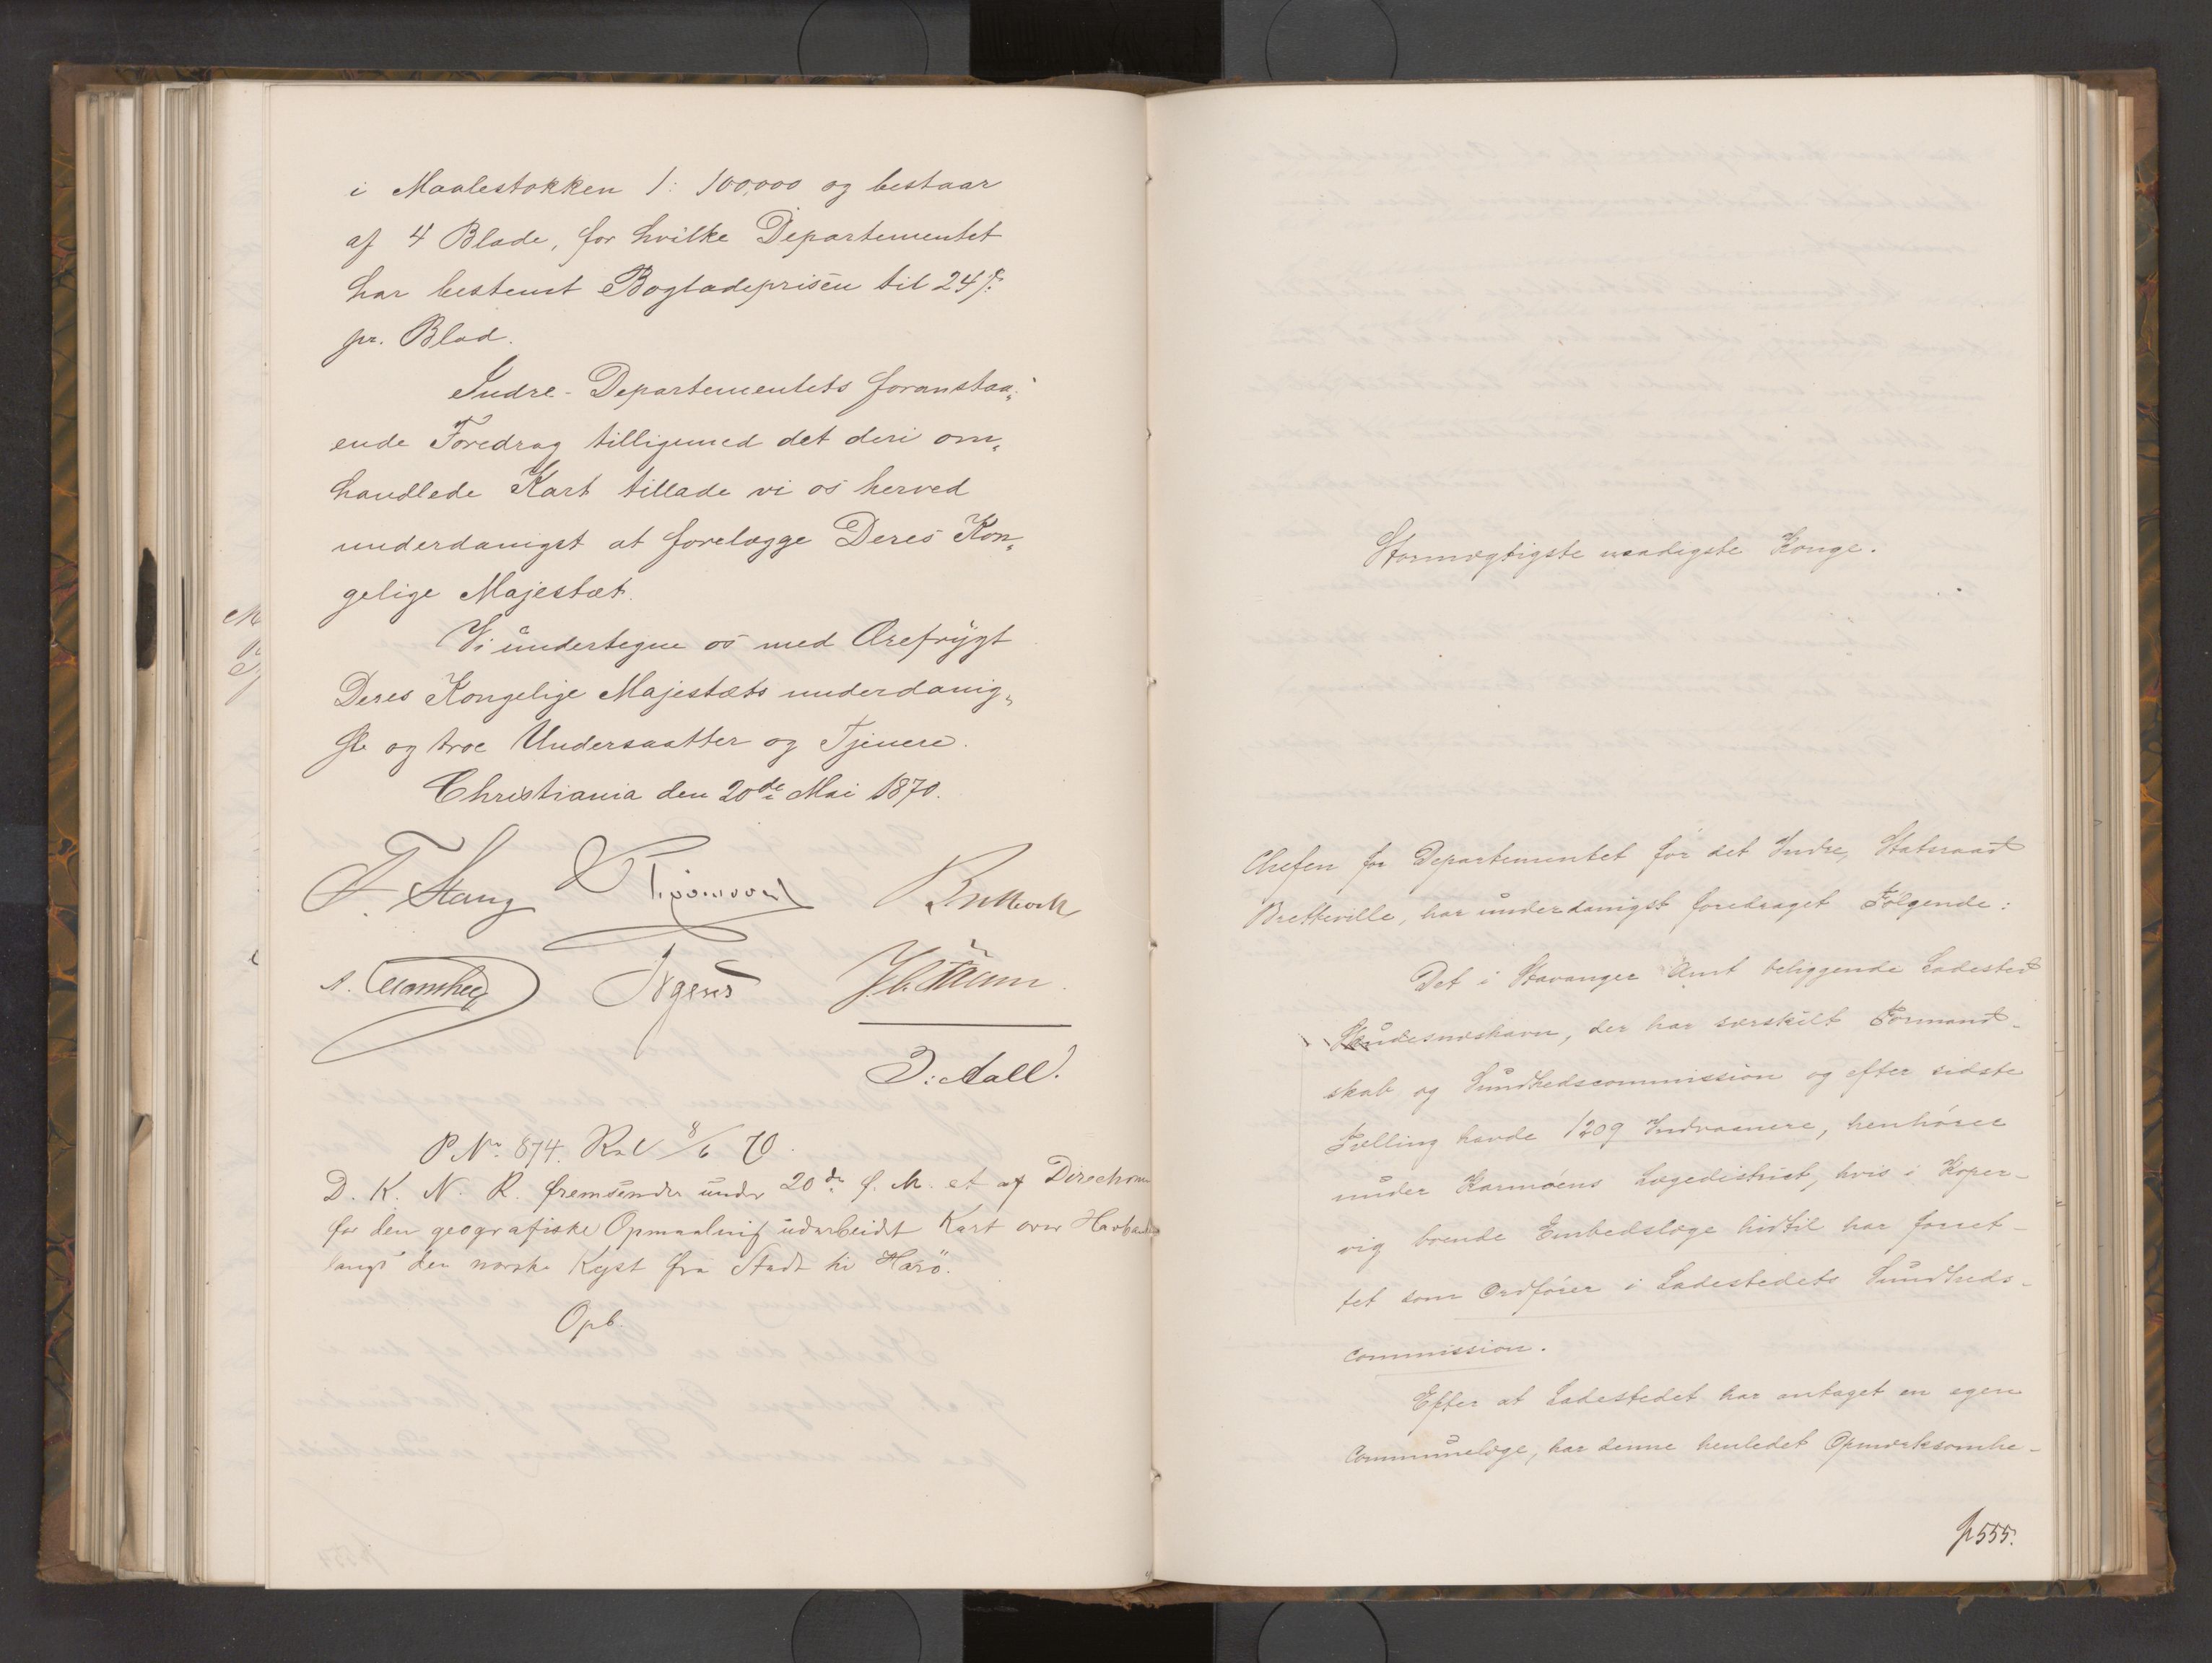 i Maalestokken 1: 100,000 og bestaar
af 4 Blade, for hvilke Departementet
har bestemt Bogladeprisen til 24 ß
pr. Blad.
Indre-Departementets foranstaa„
ende Foredrag tilligemed det deri om„
handlede Kart tillade vi os herved
underdanigst at forelægge Deres Kon„
gelige Majestæt.
Vi undertegne os med Ærefrygt
Deres Kongelige Majestæts underdanig„
ste og troe Undersaatter og Tjenere.
Christiania den 20de Mai 1870.
F. Stang
Irgens
D: Aall.
P No. 874. Rsl 8/6 70.
D. K. N. R. fremsender under 20de f. M. et af Direction
for den geografiske Opmaaling udarbeidet Kart over Havbank
langs den norske Kyst fra Stadt til Harö.
Opb.
Stormægtigste naadigste Konge.
Chefen for Departementet for det Indre, Statsraad
Bretteville, har underdanigst foredraget Følgende:
Det i Stavanger Amt beliggende Ladested
Skudesneshavn, der har særskilt Formand-
skab og Sundhedscommission og efter sidste
Tælling havde 1209 Indvaanere, henhører
under Karmøens Lægedistrict, hvis i Koper-
vig boende Embedslæge hidtil har forret-
tet som Ordfører i Ladestedets Sundheds-
commission.
Efter at Ladestedet har antaget en egen
Communelæge, har denne henledet Opmærksomhe-
p 555.